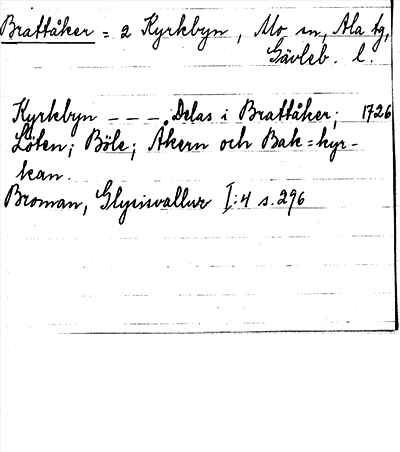 Brattåker = 2 Kyrkbyn, Mo sn, Ala tg,
Gävleb. l.
Kyrkbyn - - - Delas i Brattåker; 1726
Löten; Böle; Åkern och Bak=kyr-
kan.
Broman, Glysisvallur I:4 s. 296